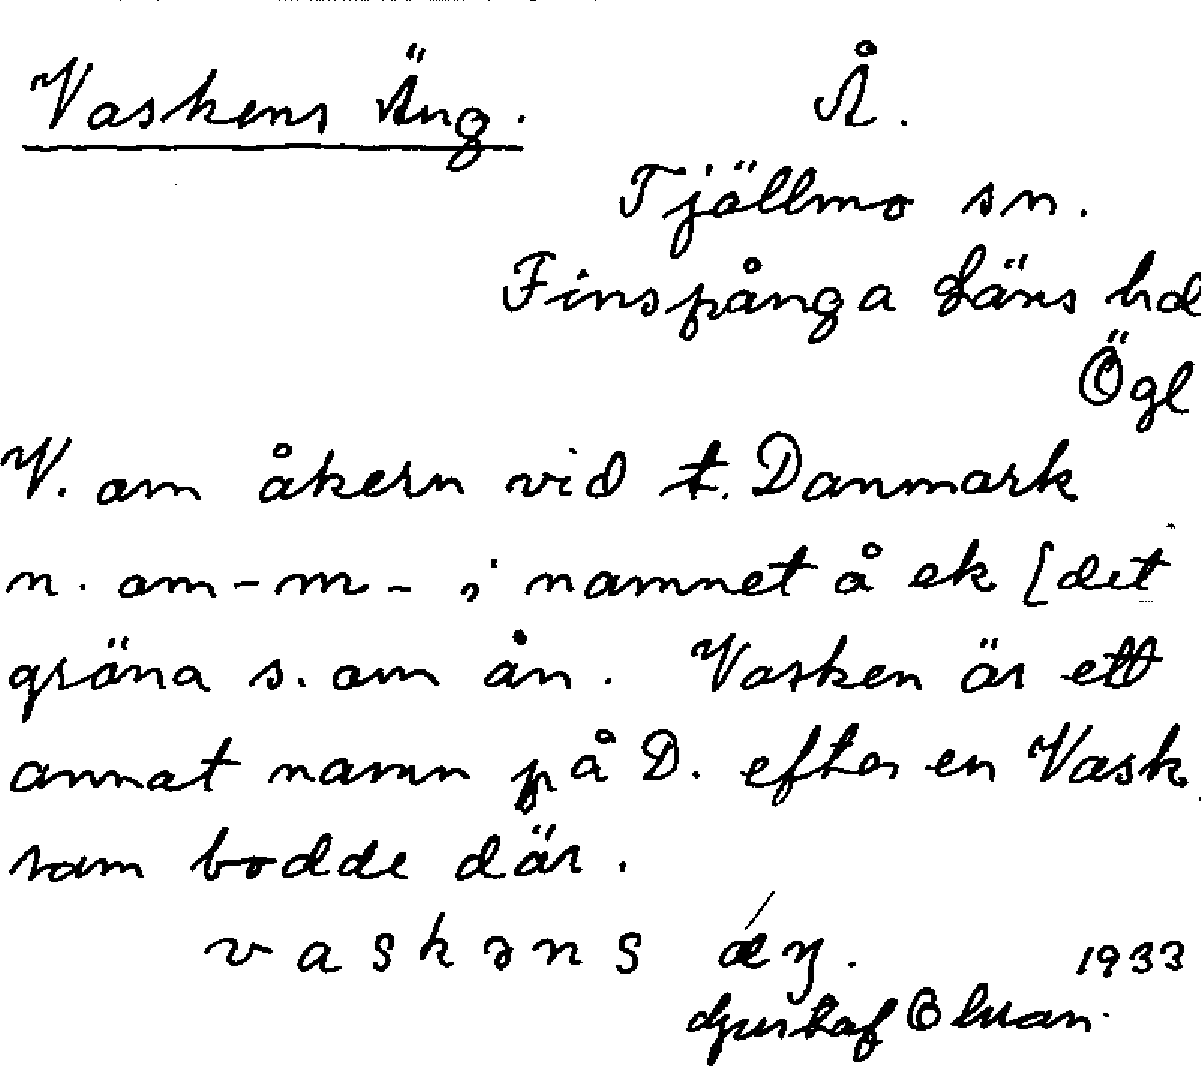 Vaskens Äng. Å.
Tjällmo sn.
Finspånga läns hd
Ögl
V. om åkern vid t. Danmark
n. om-m- i namnet å ek [det
gröna s. om ån. Vasken är ett
annat namn på D. efter en Vask
som bodde där.
vaskəns ǽŋ. 1933
Gustaf Olson.